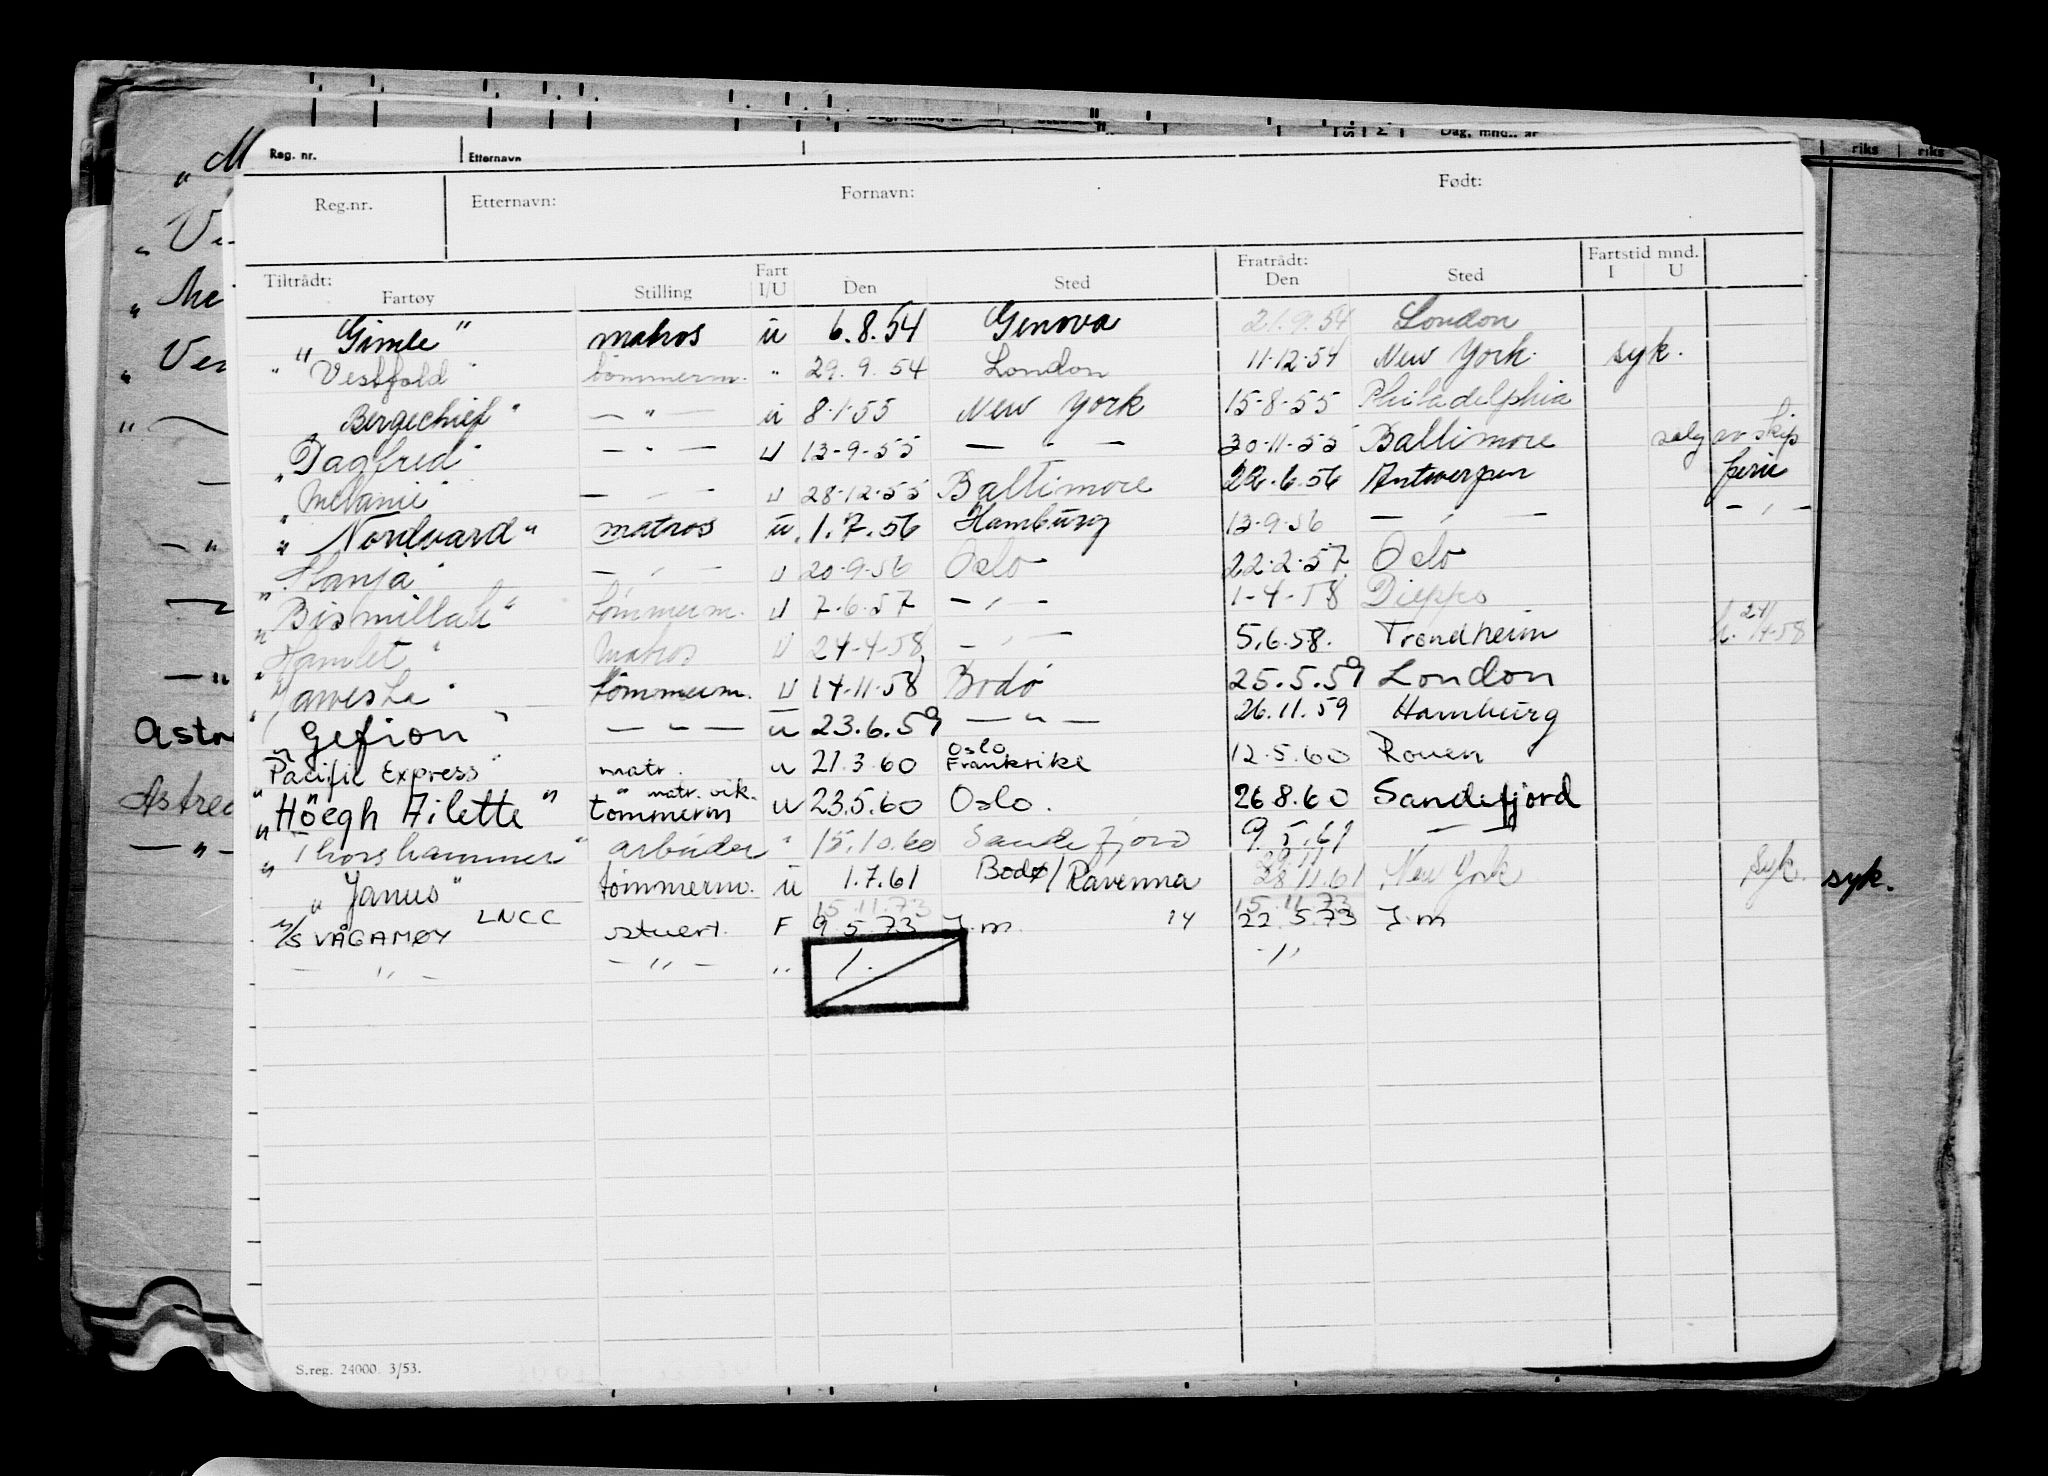 Reg. nr. Etternavn
Reg.nr. Etternavn: Fornavn: Født:
Tiltrådt: Fartøy Stilling Fart I/U Den Sted Fratrådt: Den Sted Fartstid mnd. I U
"Gimle" matros u 6.8.54 Genova 21.9.54 London
"Vestfold" tømmerm. " 29.9.54 London 11.12.54 New York. syk.
"Bergechief" — " — u 8.1.55 New York 15-8-55 Philadelphia
"Dagfred" — " — u 13-9-55 — " — 30-11-55 Baltimore salg av skip
"Melanie" — " — u 28-12-55 Baltimore 22.6.56 Antwerpen ferie
"Nordvard" matros u. 1.7.56 Hamburg 13-9-56 — " — — " —
"Hanja" — " — u 20-9-56 Oslo 22-2-57 Oslo
"Bismillah" tømmerm. u 7-6-57 — " — 1-4-58 Dieppe
"Hamlet" Matros u 24-4-58 — " — 5.6.58. Trondheim
tømmerm. u 14-11-58 Bodø 25.5.59 London
"Gefion" — " — u 23.6.59 — " — 26.11.59 Hamburg
"Pacific Express" matr. u 21.3.60 Oslo Frankrike 12.5.60 Rouen
"Höegh Ailette" " matr. vik. tömmerm u 23.5.60 Oslo. 26 8.60 Sandefjord
"Thorshammer" arbeider " 15.10.60 Sandefjord 9.5.61 — " —
"Janus" tømmerm. u 1.7.61 Bodø/Ravenna 29.11 28.11.61 New York syk. syk.
15.11.73 15.11.73
M/S VÅGAMØY LNCC stuert F 9 5 73 J.m 14 22.5.73 J.m
— " — — " — " 1. — " —
S.reg. 24000. 3/53.